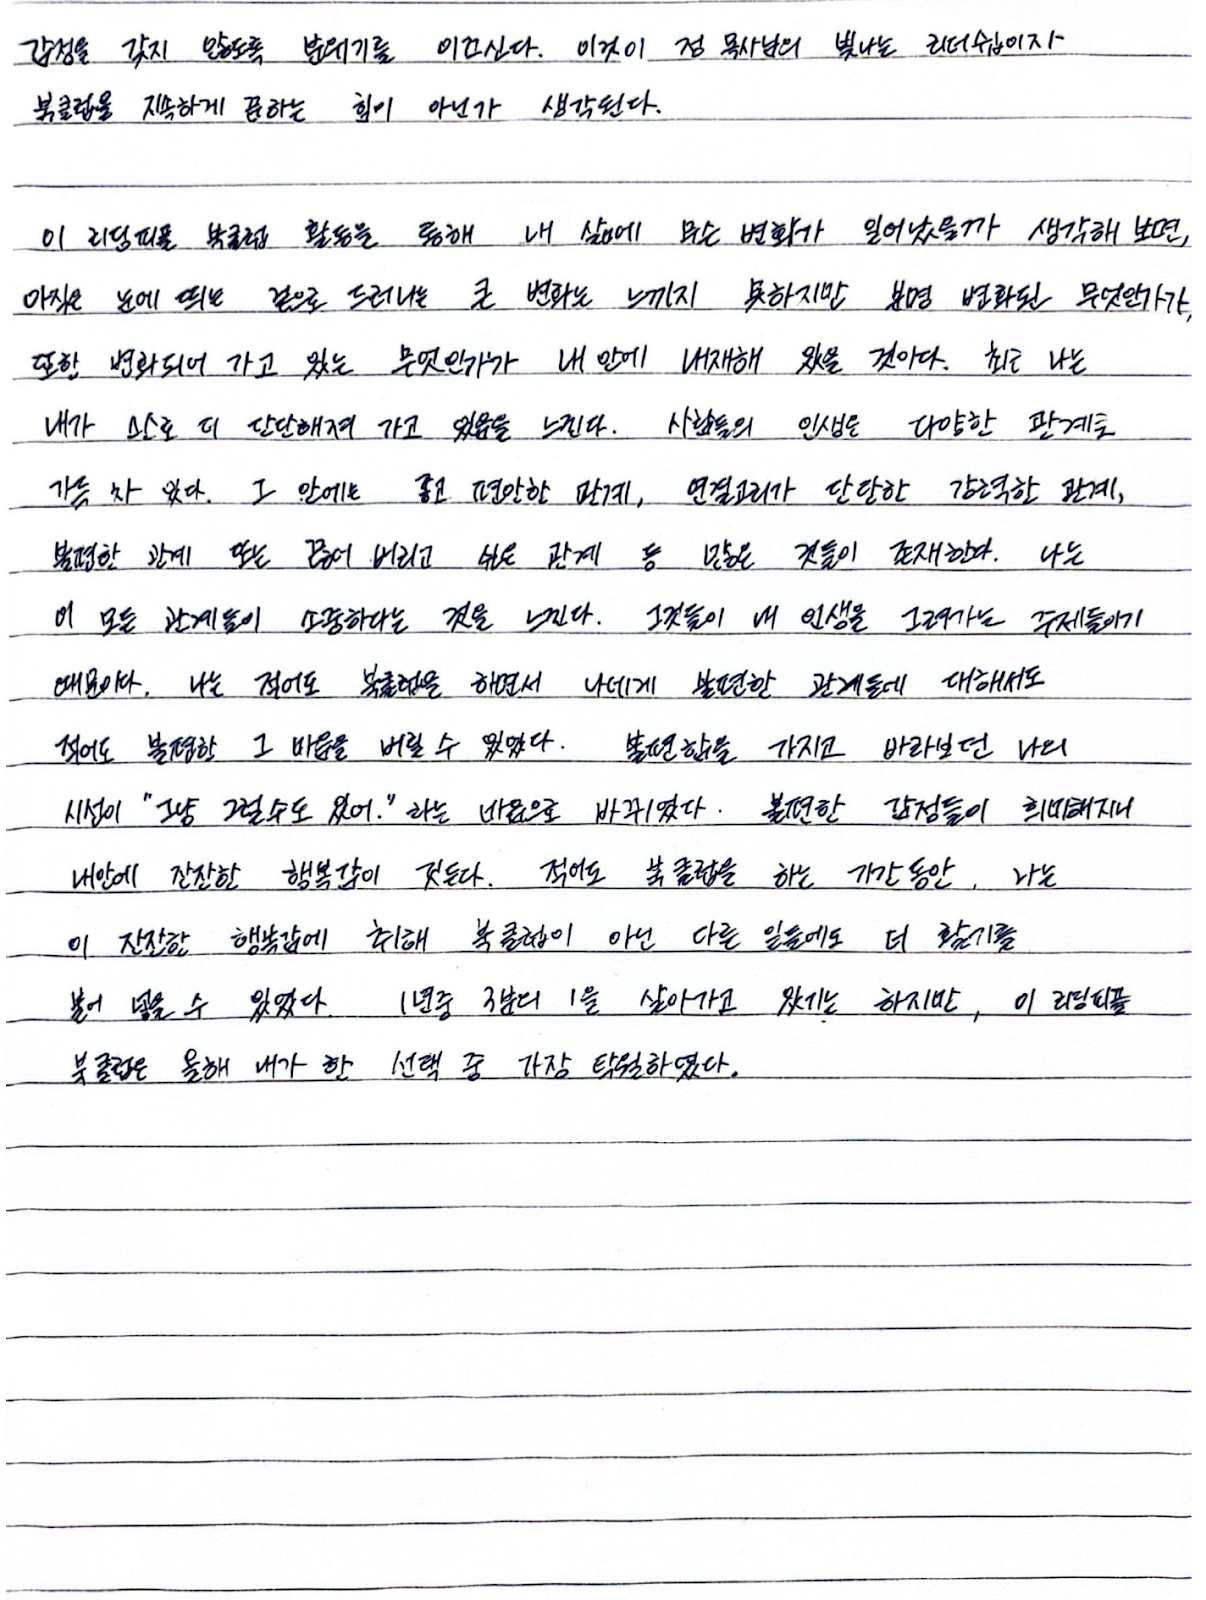 감정을 갖지 않도록 분위기를 이끄신다. 이것이 정 목사님의 빛나는 리더쉽이자
북클럽을 지속하게 끔하는 힘이 아닌가 생각된다.
이 리딩피플 북클럽 활동을 통해 내 삶에 무슨 변화가 일어났을까 생각해 보면,
아직은 눈에 띄는 겉으로 드러나는 큰 변화는 느끼지 못하지만 분명 변화된 무엇인가가,
또한 변화되어 가고 있는 무엇인가가 내 안에 내재해 있을 것이다. 최근 나는
내가 스스로 더 단단해져 가고 있음을 느낀다. 사람들의 인생은 다양한 관계로
가득 차 있다. 그 안에는 좋고 편안한 관계, 연결고리가 단단한 강력한 관계,
불편한 관계 또는 끊어 버리고 싶은 관계 등 많은 것들이 존재한다. 나는
이 모든 관계들이 소중하다는 것을 느낀다. 그것들이 내 인생을 그려가는 주제들이기
때문이다. 나는 적어도 북클럽을 하면서 나에게 불편한 관계들에 대해서도
적어도 불편한 그 마음을 버릴 수 있었다. 불편함을 가지고 바라보던 나의
시선이 "그냥 그럴수도 있어." 라는 마음으로 바뀌었다. 불편한 감정들이 희미해지니
내안에 잔잔한 행복감이 깃든다. 적어도 북클럽을 하는 기간 동안, 나는
이 잔잔한 행복감에 취해 북클럽이 아닌 다른 일들에도 더 활기를
불어 넣을 수 있었다. 1년중 3분의 1을 살아가고 있기는 하지만, 이 리딩피플
북클럽은 올해 내가 한 선택 중 가장 탁월하였다.